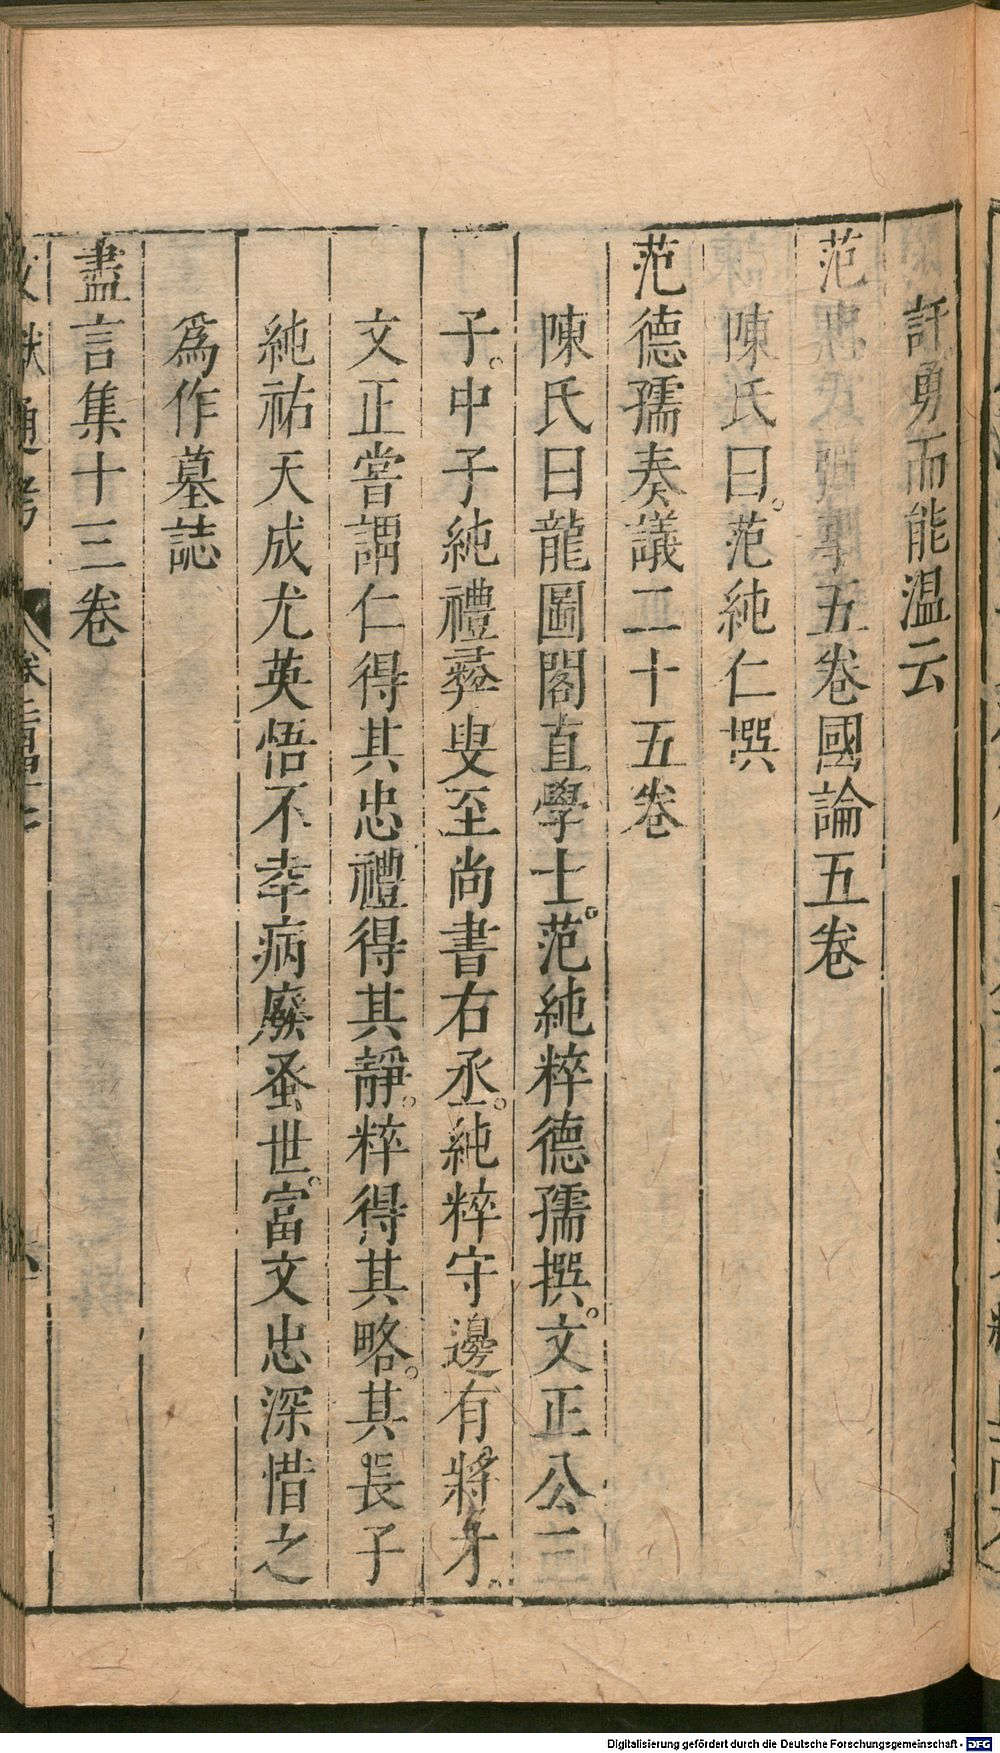 訐勇而能温云
范忠宣彈事五卷國論五卷
陳氏曰。范純仁撰
范德孺奏議二十五卷
陳氏曰龍圖閣直學士。范純粹德孺撰。文正公三
子。中子純禮彝叟至尚書右丞。純粹守邊有將才。
文正嘗謂仁得其忠禮得其靜。粹得其略。其長子
純祐天成尤英悟不幸病廢蚤世。富文忠深惜之
爲作墓誌
盡言集十三卷
文獻通考 卷
Digitalisierung gefördert durch die Deutsche Forschungsgemeinschaft - DFG